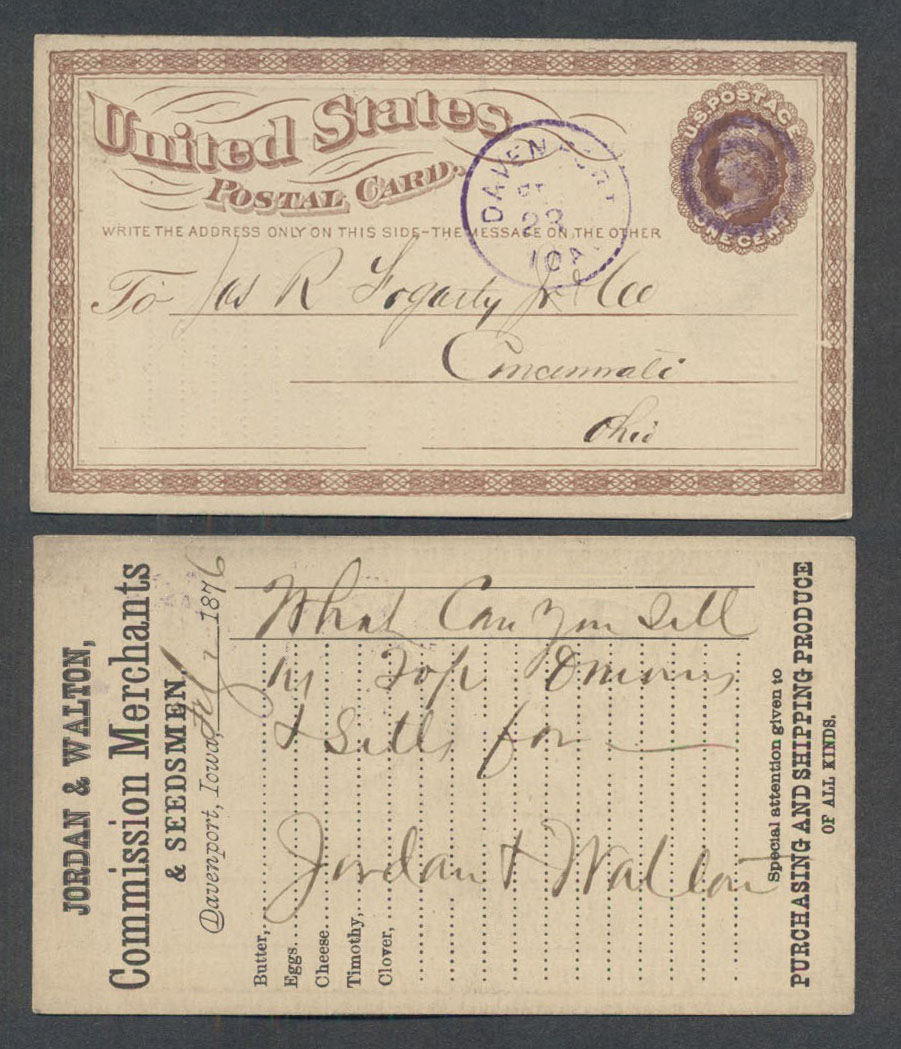 United States
POSTAL CARD.
U.S. POSTAGE
ONE CENT
DAVENPORT
23
IOA.
WRITE THE ADDRESS ONLY ON THIS SIDE–THE MESSAGE ON THE OTHER
To Jas R Fogarty Jr & Co
Cincinnati
Ohio
JORDAN & WALTON,
Commission Merchants
& SEEDSMEN,
Davenport, Iowa, 1876
What Can you Sell
us Top Onions
& Setts for
Jordan & Walton
Butter,
Eggs
Cheese
Timothy,
Clover,
Special attention given to
PURCHASING AND SHIPPING PRODUCE
OF ALL KINDS.